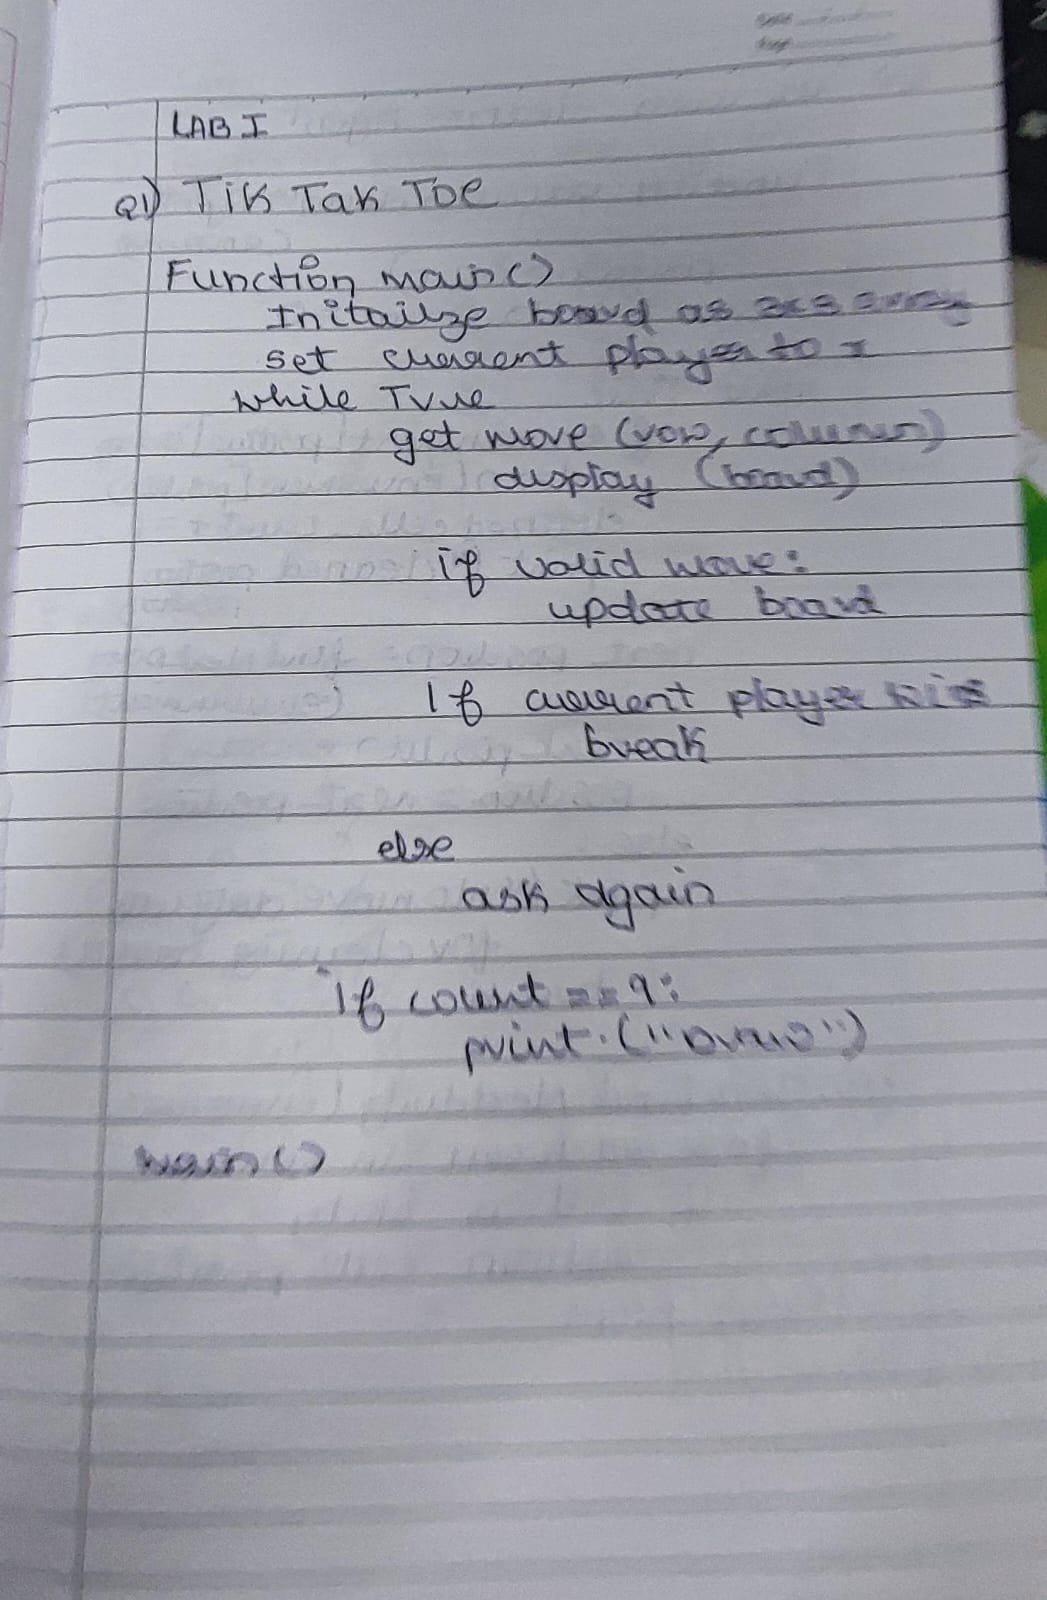 LAB I
Q1) Tik Tak Toe
Function main()
Initailze board as 3x3 array
set current player to x
while True
get move (row, column)
display (board)
if valid move:
update board
If current player
break
else
ask again
If count == 9:
print.("Draw")
main()